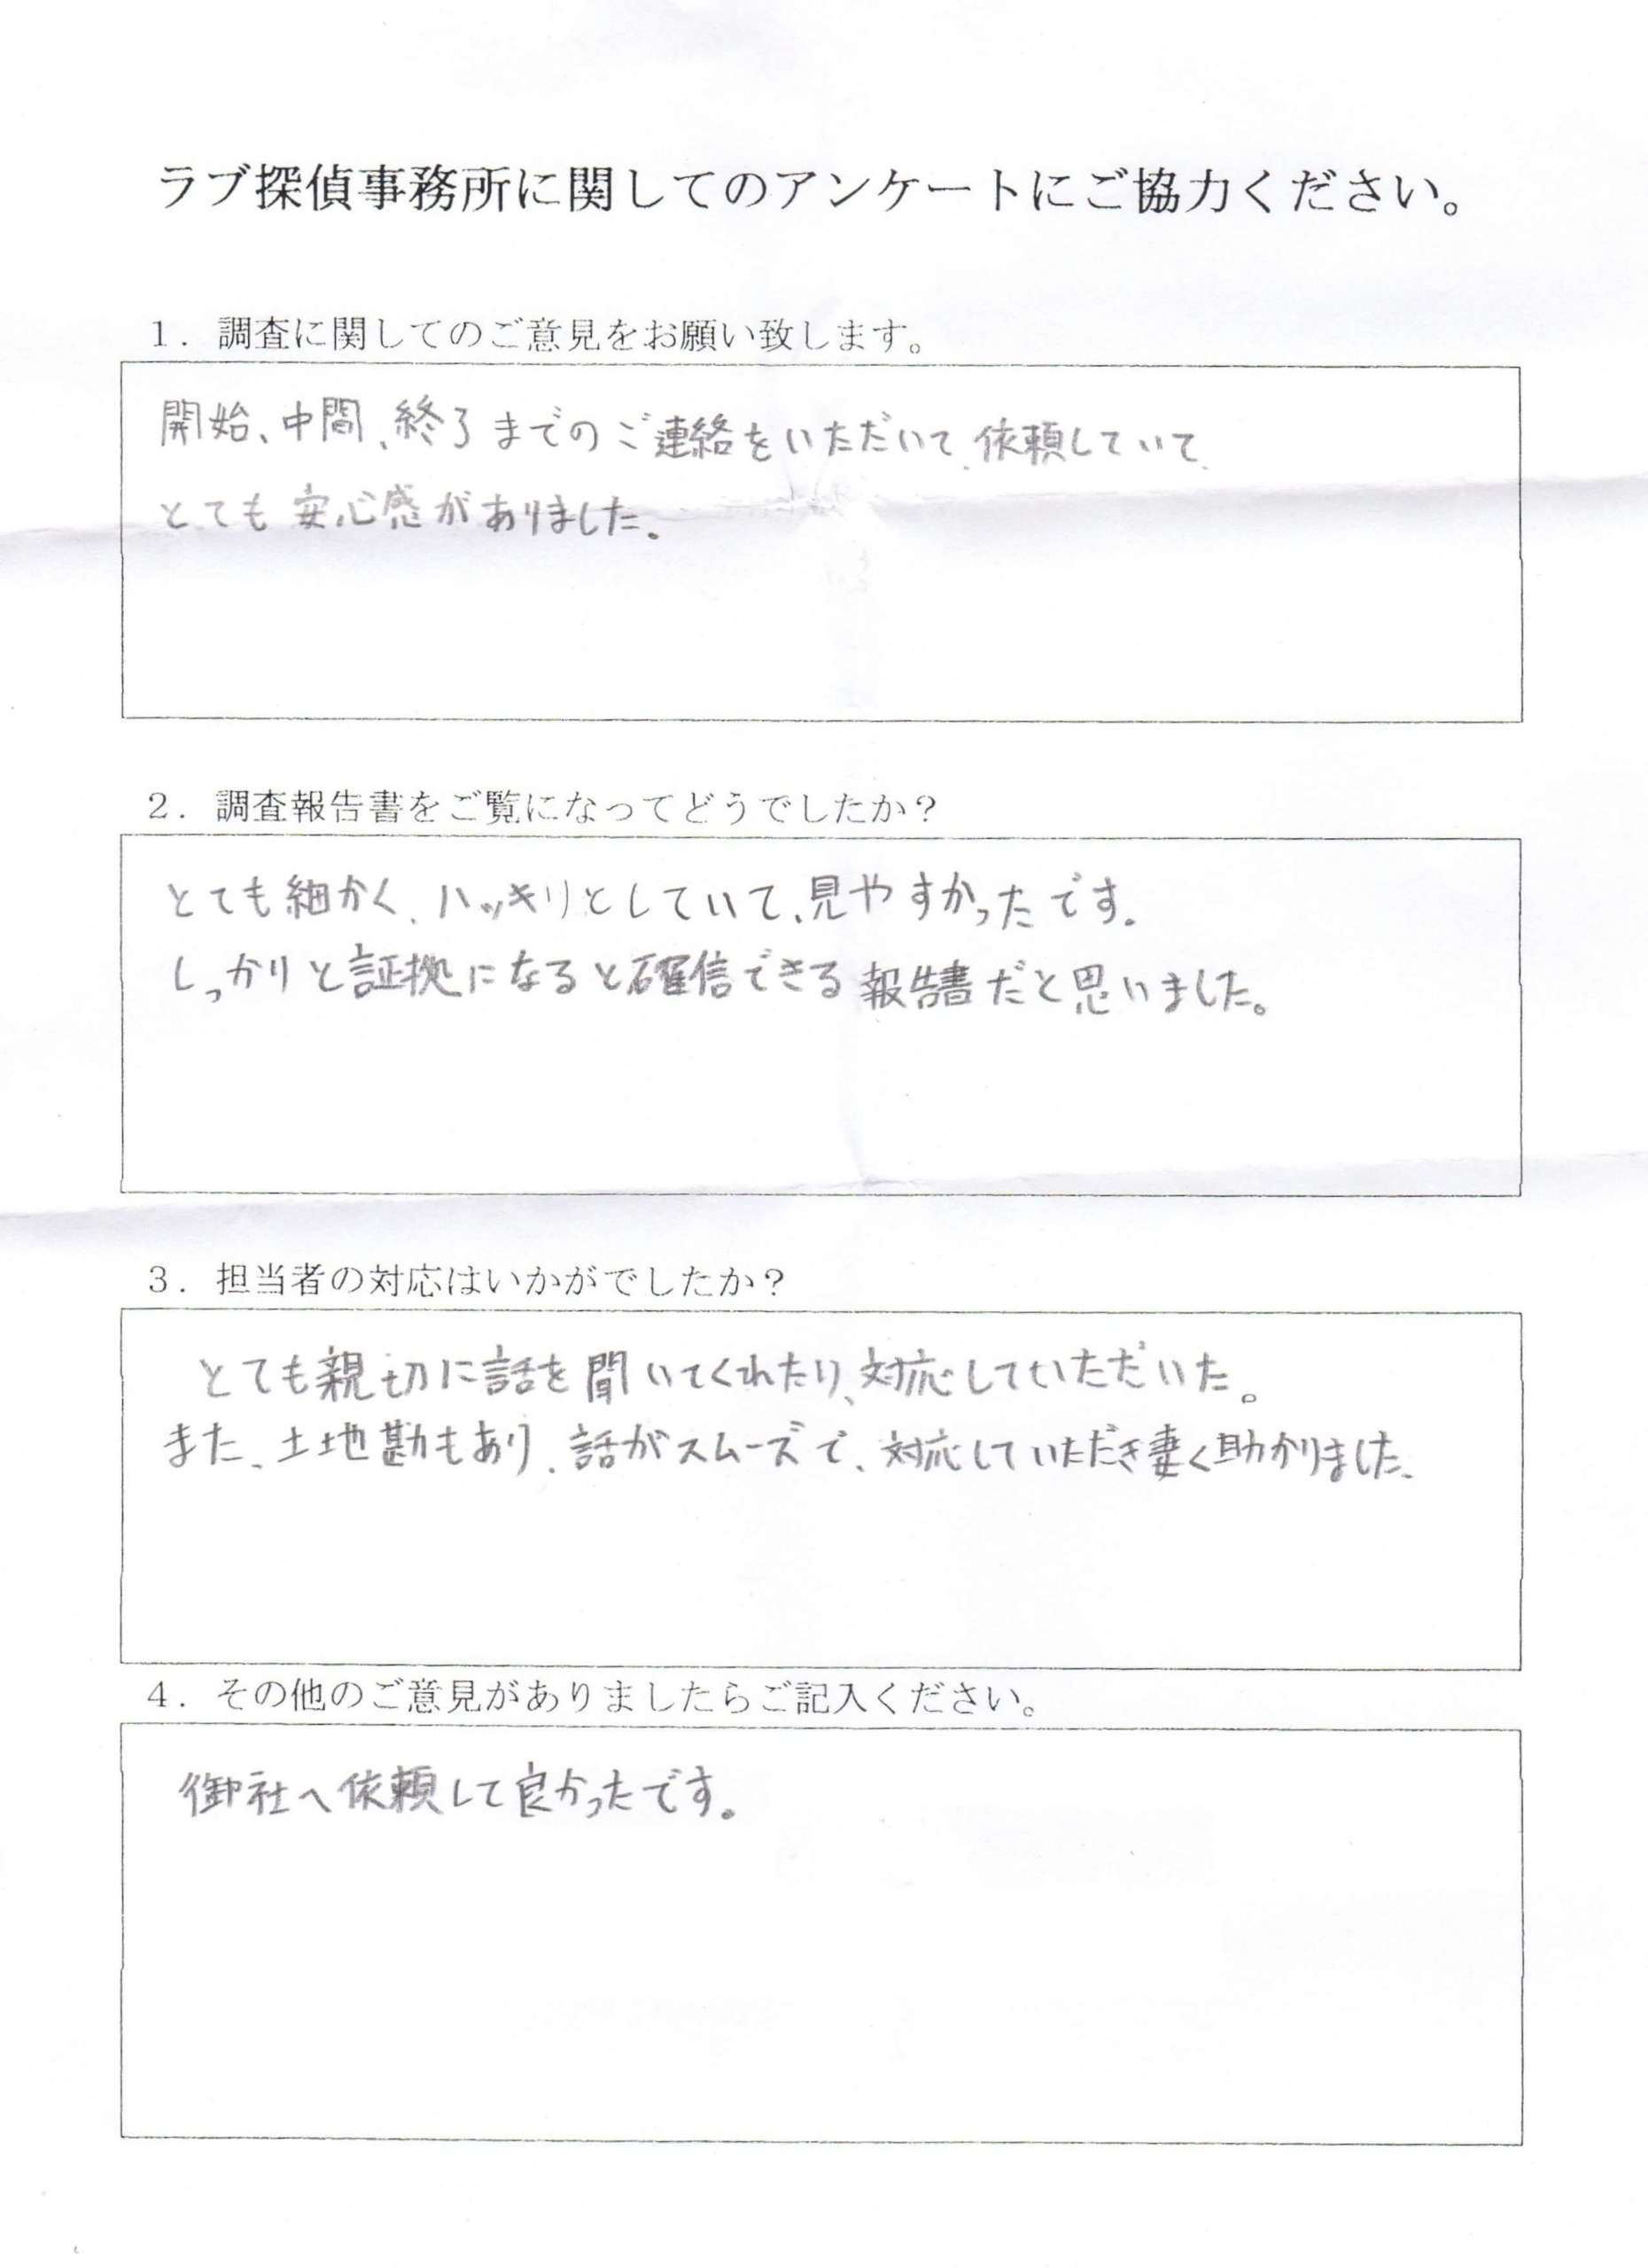 ラブ探偵事務所に関してのアンケートにご協力ください。
1．調査に関してのご意見をお願い致します。
開始、中間、終了までのご連絡をいただいて、依頼していて、
とても安心感がありました。
2．調査報告書をご覧になってどうでしたか？
とても細かく、ハッキリとしていて、見やすかったです。
しっかりと証拠になると確信できる報告書だと思いました。
3．担当者の対応はいかがでしたか？
とても親切に話を聞いてくれたり、対応していただいた。
また、土地勘もあり、話がスムーズで、対応していただき凄く助かりました、
4．その他のご意見がありましたらご記入ください。
御社へ依頼して良かったです。